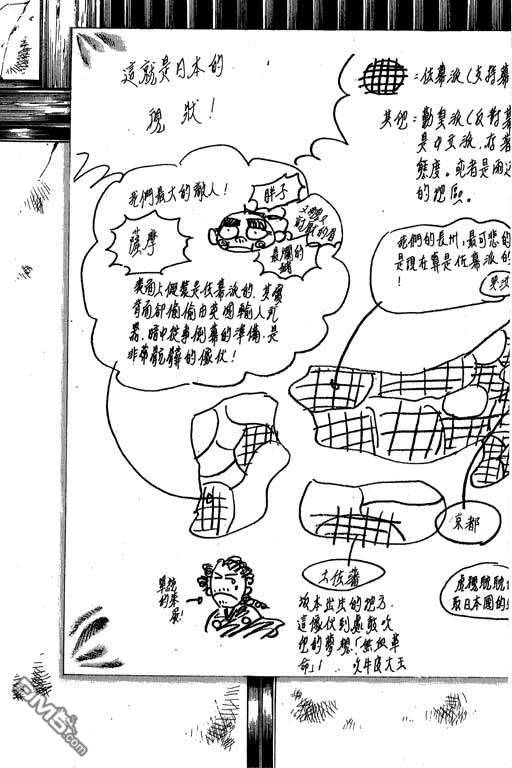 這就是日本的
現狀！
＝佐幕派（支持幕
其他＝勤皇派（反對幕
是中立派，在著
態度。或者是兩邊
的地區。
我們最大的敵人！
胖子
薩摩
長州的
我們的長州，最可悲的
是現在算是佐幕派的
！
表面上假裝是佐幕派的，其實
背面卻偷偷由英國輸入武
器，暗中從事倒幕的準備，是
非常骯髒的傢伙！
京都
土佐藩
坂本出生的地方，
這傢伙到處鼓吹
他的夢想「無血革
命」！
吹牛皮大王
單純
的笨
蛋！
虎視眈眈
取日本國的